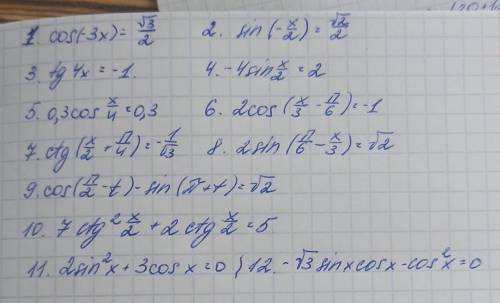 1. cos(-3x) = √3/2 2. sin(-x/2) = √2/2
3. tg 4x = -1. 4. -4 sin x/2 = 2
5. 0,3 cos x/4 = 0,3 6. 2cos(x/3 - π/6) = -1
7. ctg(x/2 + π/4) = -1/√3 8. 2 sin(π/6 - x/3) = √2
9. cos(π/2 - t) - sin(π + t) = √2
10. 7 ctg² x/2 + 2 ctg x/2 = 5
11. 2 sin²x + 3 cos x = 0 } 12. -√3 sinx cosx - cos²x = 0